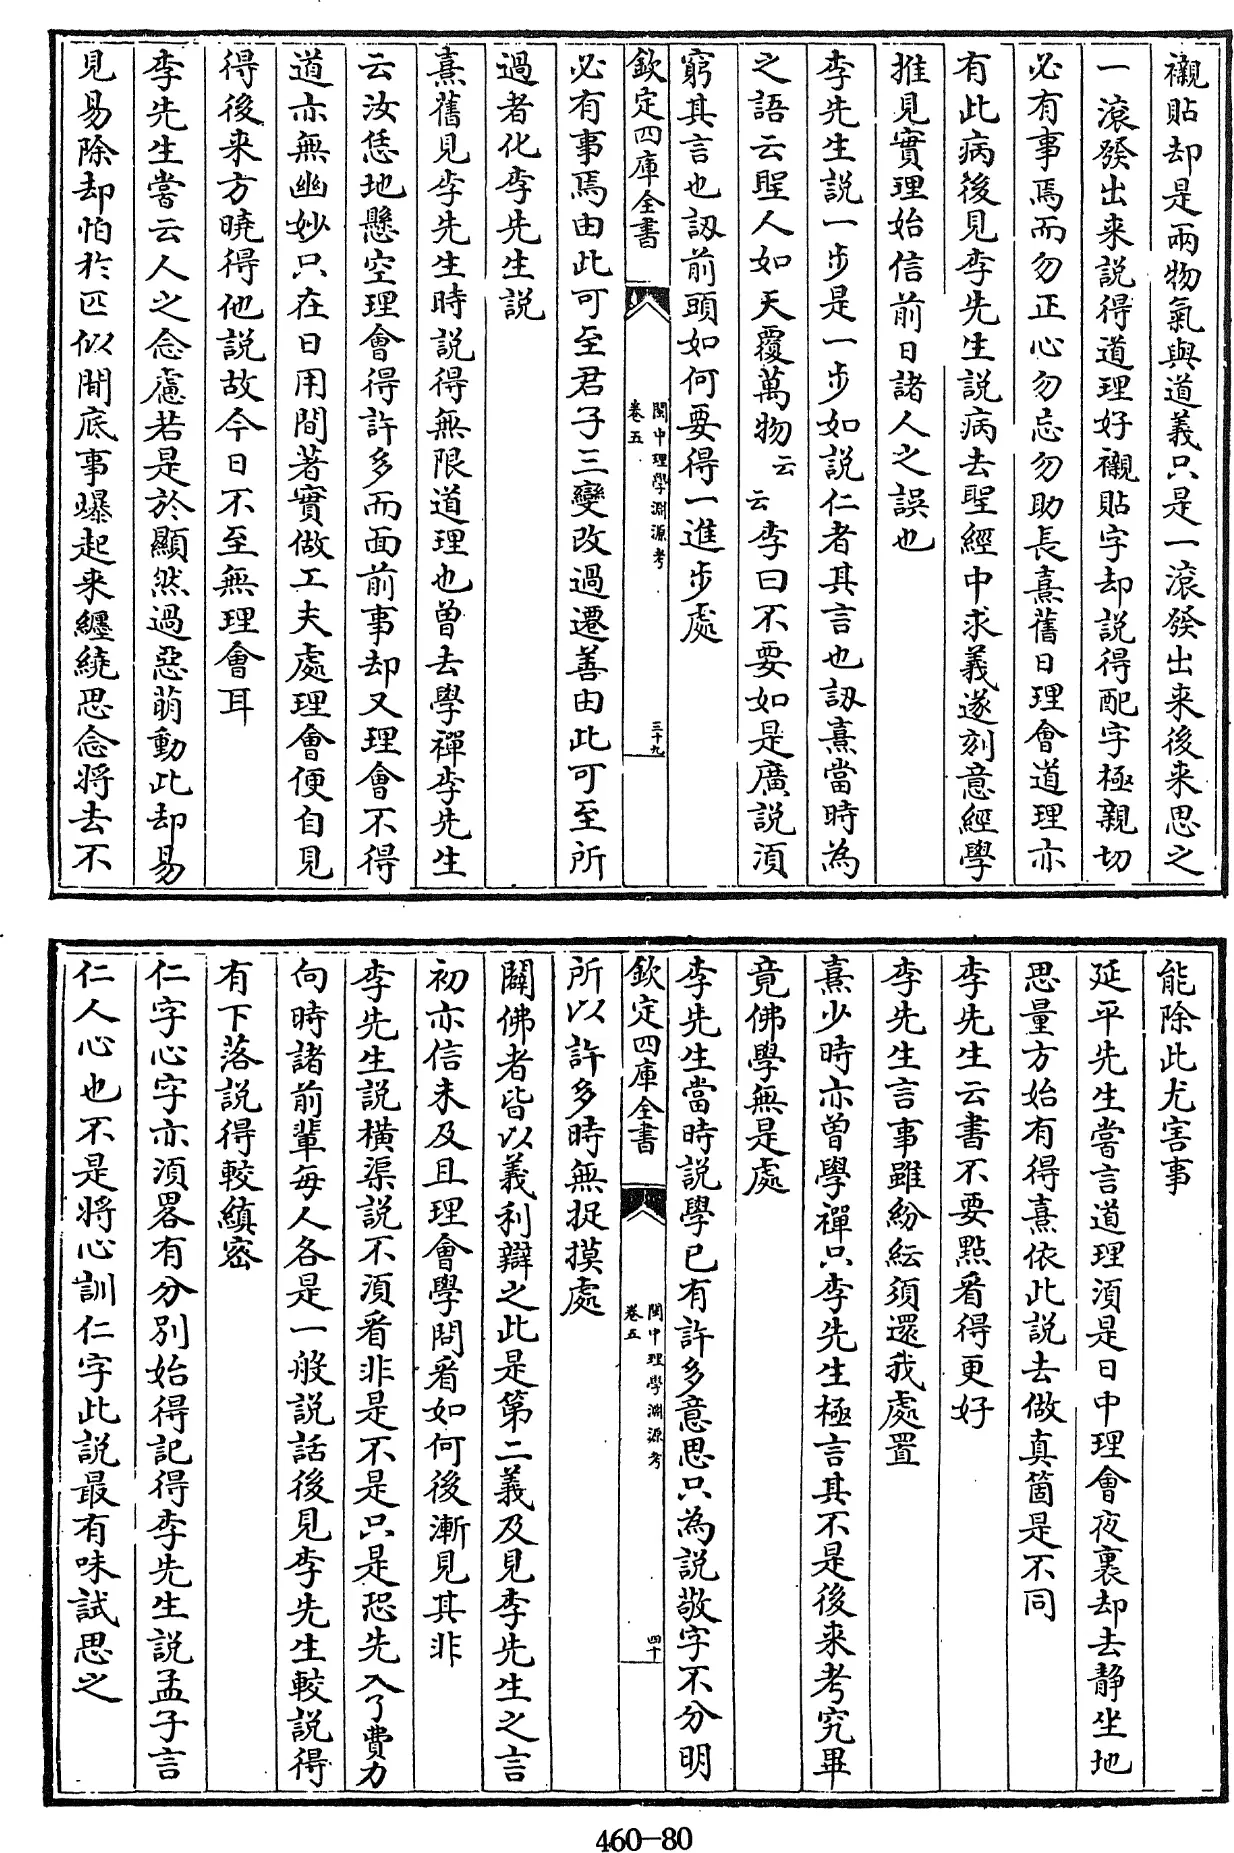 襯貼却是兩物氣與道義只是一滚發出来後来思之
一滚發出来說得道理好襯貼字却說得配字極親切
必有事焉而勿正心勿忘勿助長熹舊日理會道理亦
有此病後見李先生說病去聖經中求義遂刻意經學
推見實理始信前日諸人之誤也
李先生說一步是一步如說仁者其言也訒熹當時為
之語云聖人如天覆萬物云云李曰不要如是廣說湏
窮其言也訒前頭如何要得一進步處
欽定四庫全書
閩中理學淵源考
卷五
三十九
必有事焉由此可至君子三變改過遷善由此可至所
過者化李先生說
熹舊見李先生時說得無限道理也曽去學禪李先生
云汝恁地懸空理會得許多而面前事却又理會不得
道亦無幽妙只在日用間著實做工夫處理會便自見
得後来方曉得他說故今日不至無理會耳
李先生嘗云人之念慮若是於顯然過惡萌動此却易
見易除却怕於匹似閒底事爆起来纏繞思念將去不
能除此尤害事
延平先生嘗言道理湏是日中理會夜裏却去靜坐地
思量方始有得熹依此說去做真箇是不同
李先生云書不要點看得更好
李先生言事雖紛紜須還我處置
熹少時亦曽學禪只李先生極言其不是後来考究畢
竟佛學無是處
李先生當時說學已有許多意思只為說敬字不分明
欽定四庫全書
閩中理學淵源考
卷五
四十
所以許多時無捉摸處
闢佛者皆以義利辯之此是第二義及見李先生之言
初亦信未及且理會學問看如何後漸見其非
李先生說橫渠說不湏看非是不是只是恐先入了費力
向時諸前輩每人各是一般說話後見李先生較說得
有下落說得較縝密
仁字心字亦湏畧有分別始得記得李先生說孟子言
仁人心也不是將心訓仁字此說最有味試思之
460-80